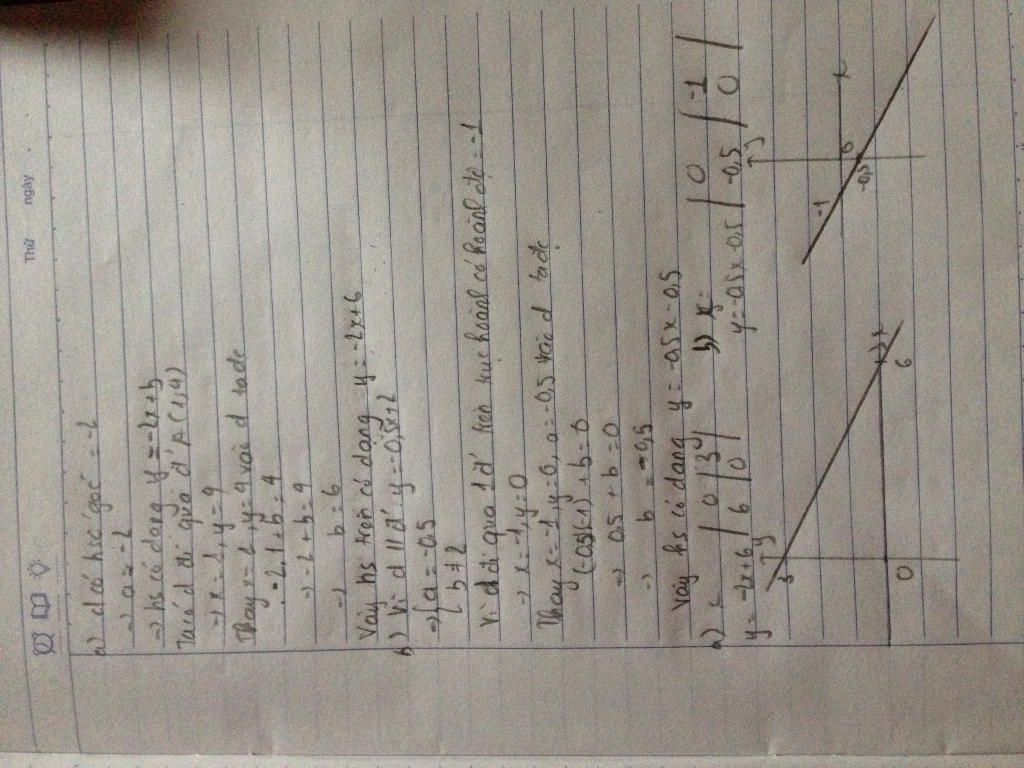 Thứ ngày
a) d có hệ góc = -2
→ a = -2
→ hs có dạng y = -2x+b
Ta có d đi qua đ' A(1,4)
→ x = 1, y = 4
Thay x = 1, y = 4 vào d ta đc
-2.1 + b = 4
→ -2 + b = 4
→ b = 6
Vậy hs trên có dạng y = -2x+6
b) Vì d // đ' y = -0,5x+2
→ { a = -0,5
b ≠ 2
Vì d đi qua 1 đ' trên trục hoành có hoành độ = -1
→ x = -1, y = 0
Thay x = -1, y = 0, a = -0,5 vào d ta đc
(-0,5)(-1) + b = 0
→ 0,5 + b = 0
→ b = -0,5
Vậy hs có dạng y = -0,5x - 0,5
a) x | 0 | 3 |
y = -2x+6 | 6 | 0 |
b) x | 0 | -1 |
y = -0,5x-0,5 | -0,5 | 0 |
y
3
0
6
x
y
-1
0
x
-0,5